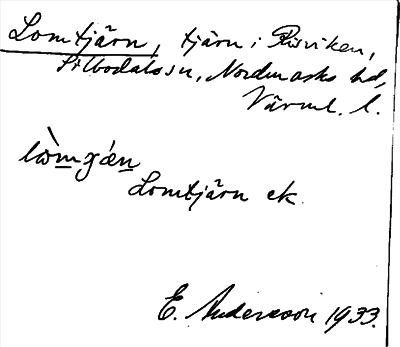 Lomtjärn, tjärn i Risviken,
Silbodals sn, Nordmarks hd,
Värml. l.
lòmɡæ̀n
Lomtjärn ek.
E. Andersson 1933.